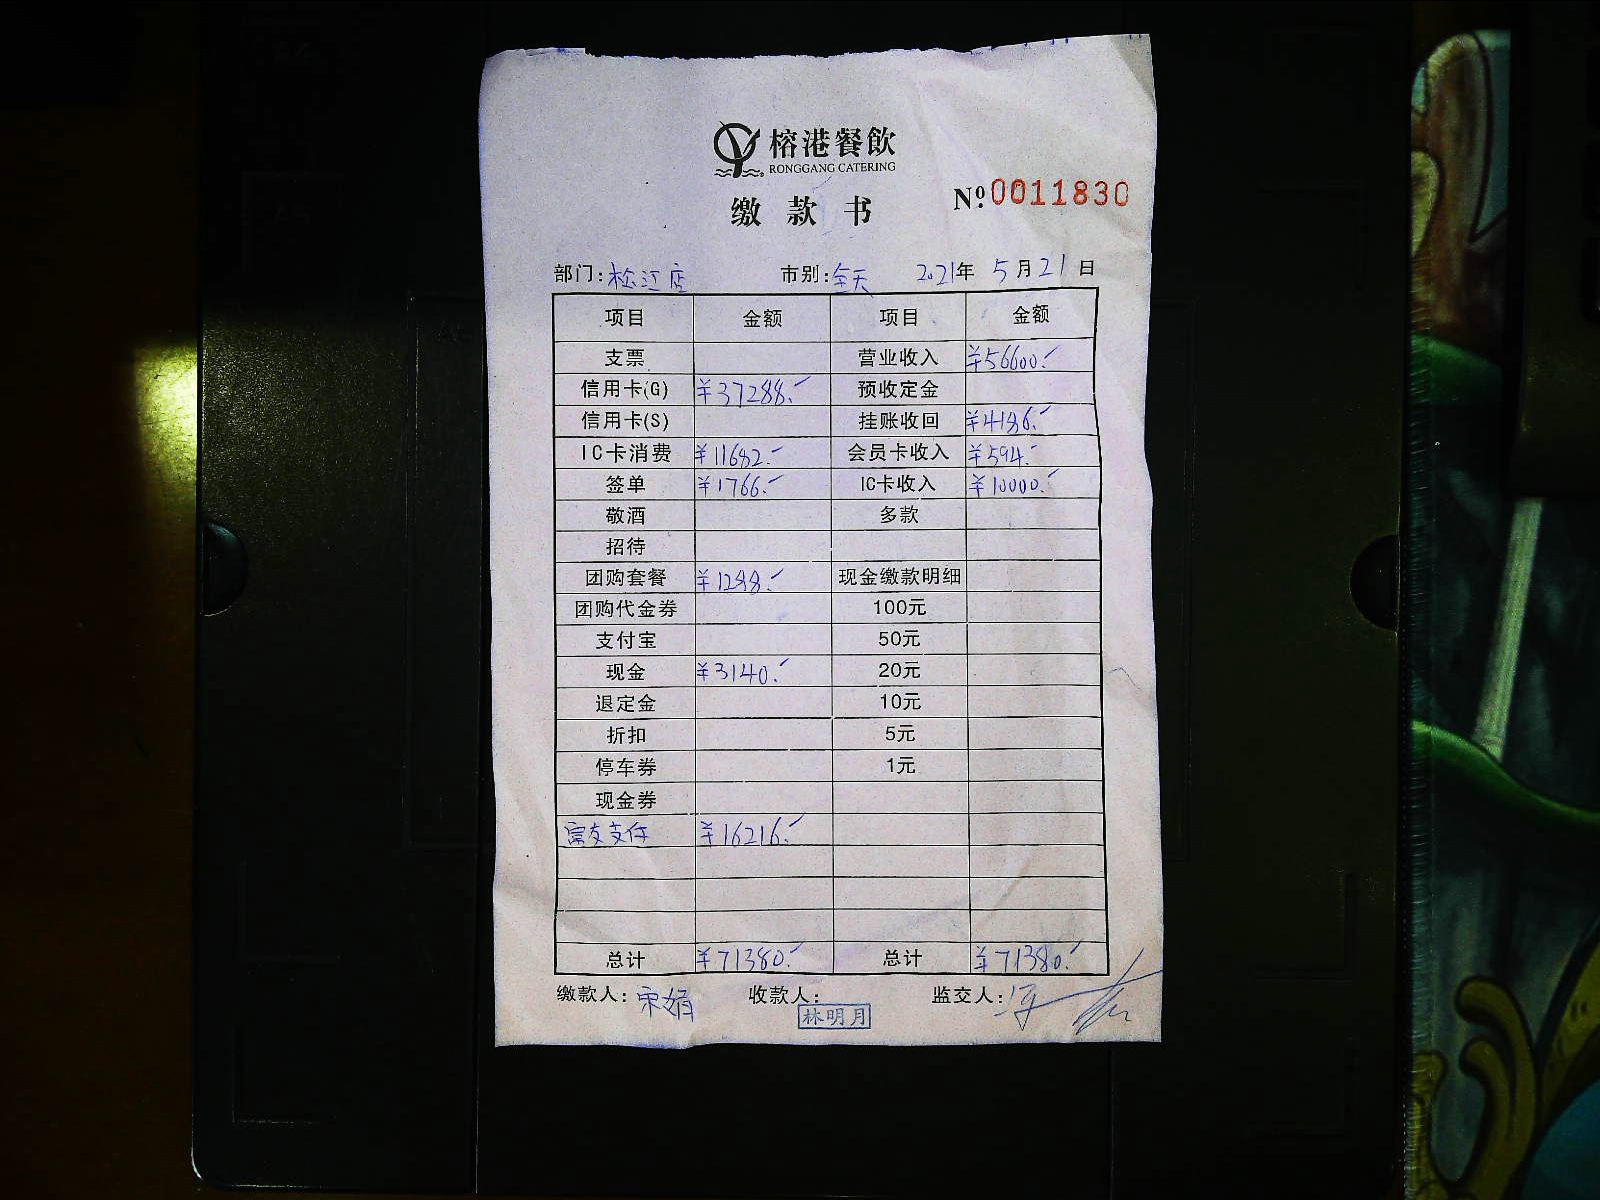 榕港餐飲
RONGGANG CATERING
缴款书 Nº 0011830
部门:松江店 市别:全天 2021年 5月21日
项目 金额 项目 金额
支票 营业收入 ¥56600.
信用卡(G) ¥37288. 预收定金
信用卡(S) 挂账收回 ¥4186.
IC卡消费 ¥11682. 会员卡收入 ¥594.
签单 ¥1766. IC卡收入 ¥10000.
敬酒 多款
招待
团购套餐 ¥1288. 现金缴款明细
团购代金券 100元
支付宝 50元
现金 ¥3140. 20元
退定金 10元
折扣 5元
停车券 1元
现金券
富友支付 ¥16216.
总计 ¥71380. 总计 ¥71380.
缴款人:宋娟 收款人: 监交人:
林明月